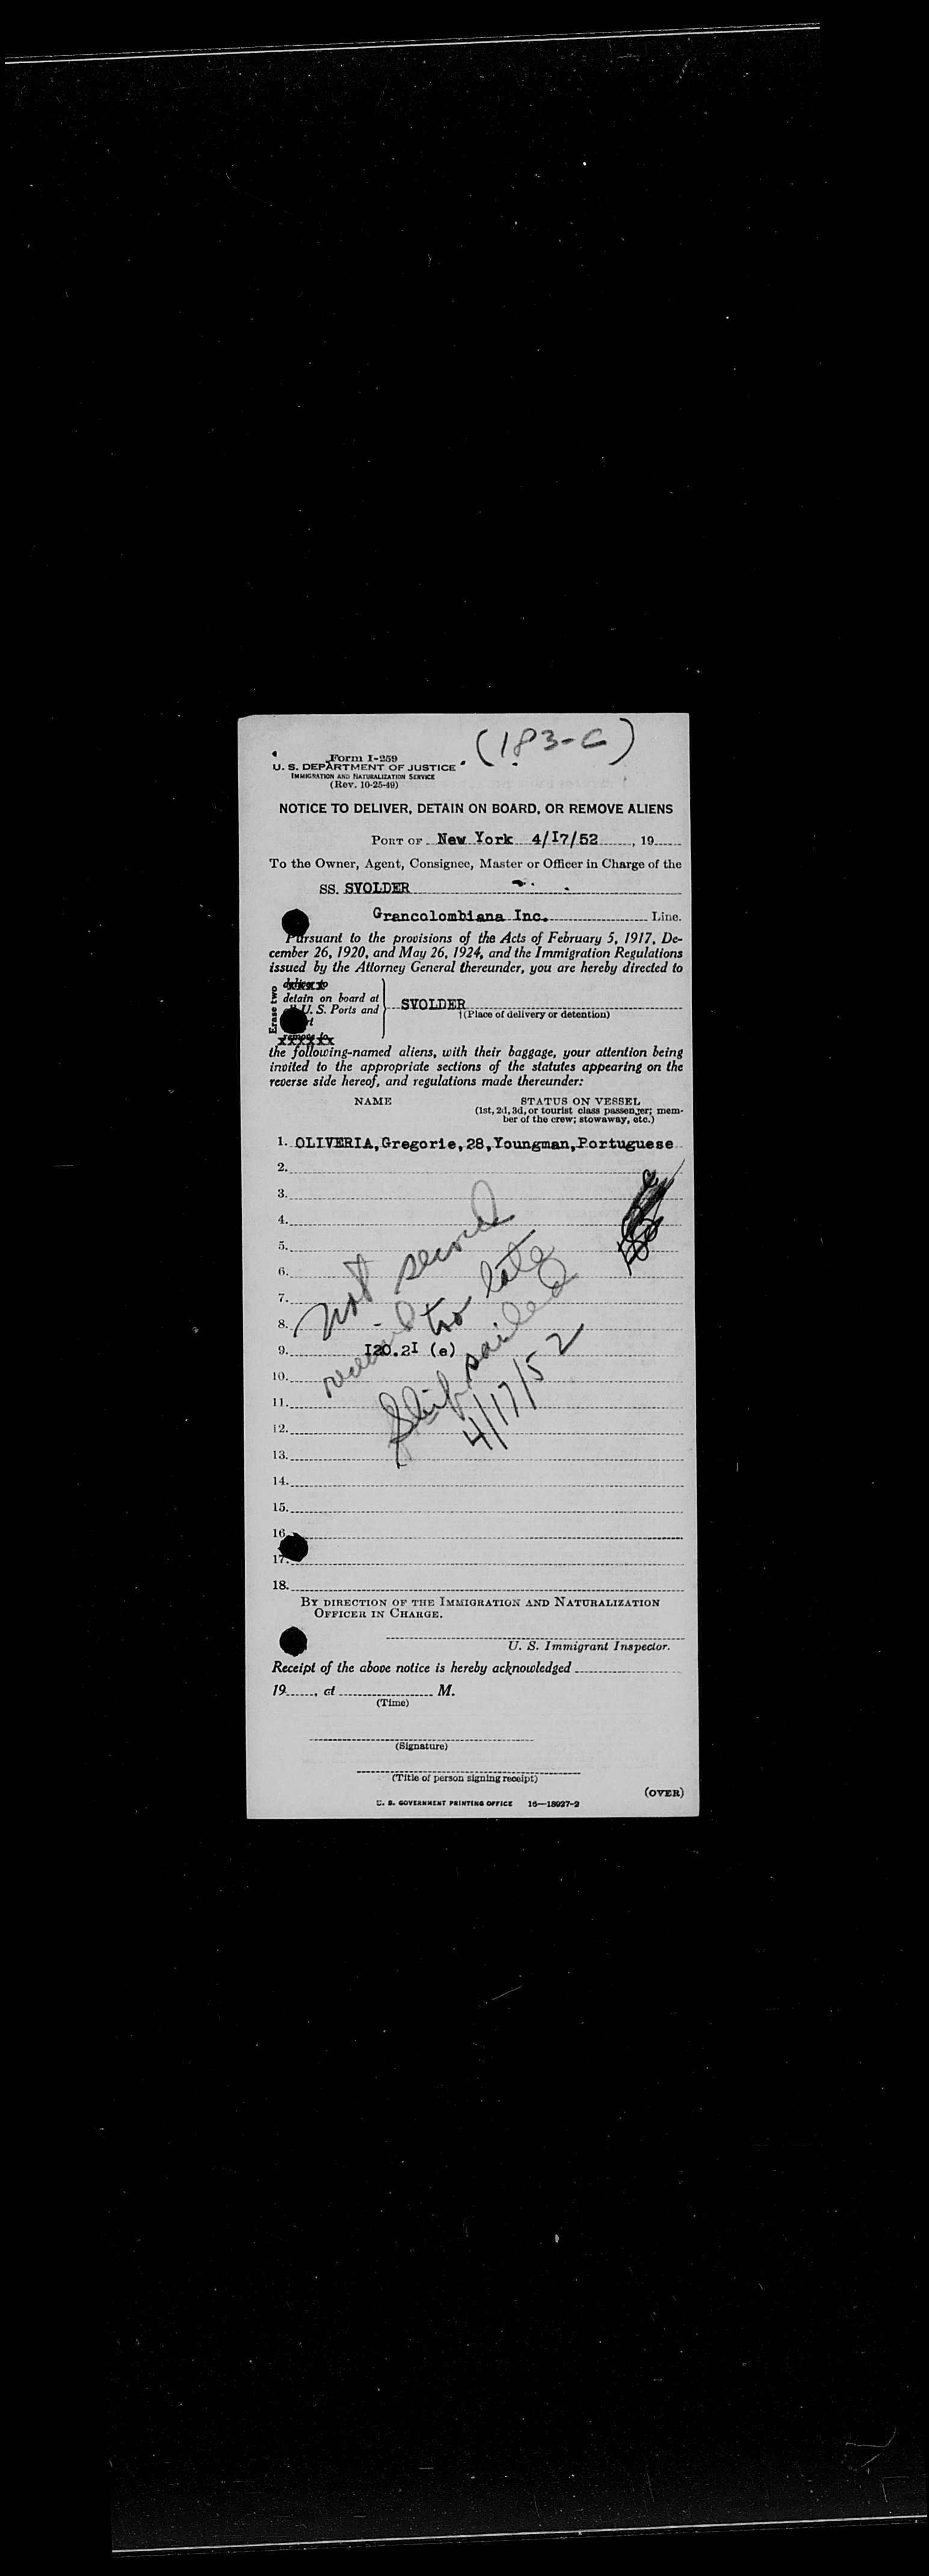 (183-C)
Form I-259
U. S. DEPARTMENT OF JUSTICE
IMMIGRATION AND NATURALIZATION SERVICE
(Rev. 10-25-49)
NOTICE TO DELIVER, DETAIN ON BOARD, OR REMOVE ALIENS
PORT OF New York 4/I7/52, 19
To the Owner, Agent, Consignee, Master or Officer in Charge of the
SS. SVOLDER
Grancolombiana Inc. Line.
Pursuant to the provisions of the Acts of February 5, 1917, De-
cember 26, 1920, and May 26, 1924, and the Immigration Regulations
issued by the Attorney General thereunder, you are hereby directed to
Erase two
detain on board at
U. S. Ports and
SVOLDER
†(Place of delivery or detention)
the following-named aliens, with their baggage, your attention being
invited to the appropriate sections of the statutes appearing on the
reverse side hereof, and regulations made thereunder:
NAME STATUS ON VESSEL
(1st, 2d, 3d, or tourist class passenger; mem-
ber of the crew; stowaway, etc.)
1. OLIVERIA,Gregorie,28,Youngman,Portuguese
2.
3.
4.
5.
6.
7.
8.
9. I20.2I (e)
10.
11.
12.
13.
14.
15.
16.
17.
18.
not served
too late
Ship sailed
4/17/52
BY DIRECTION OF THE IMMIGRATION AND NATURALIZATION
OFFICER IN CHARGE.
U. S. Immigrant Inspector.
Receipt of the above notice is hereby acknowledged
19, at M.
(Time)
(Signature)
(Title of person signing receipt)
(OVER)
U. S. GOVERNMENT PRINTING OFFICE 16—18027-2